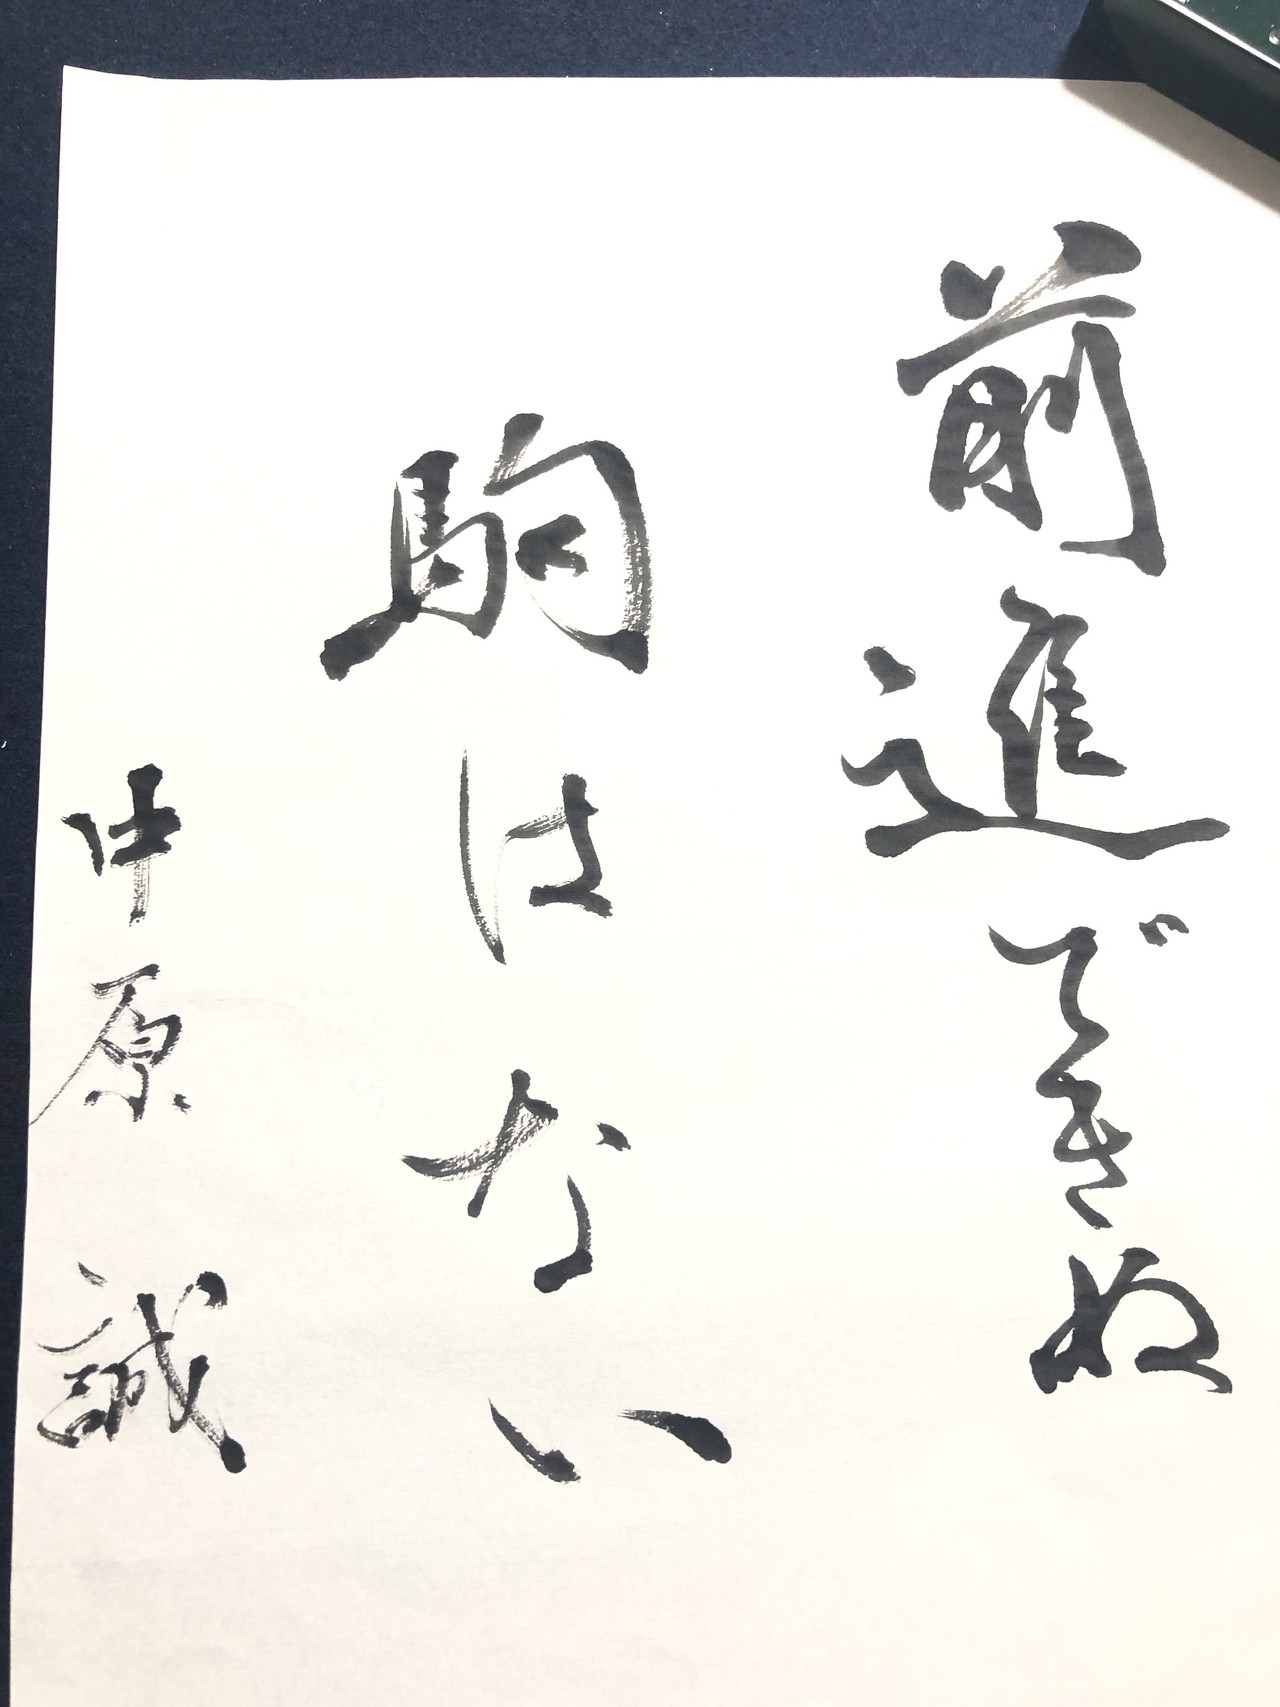 前進できぬ
駒はない
中原誠